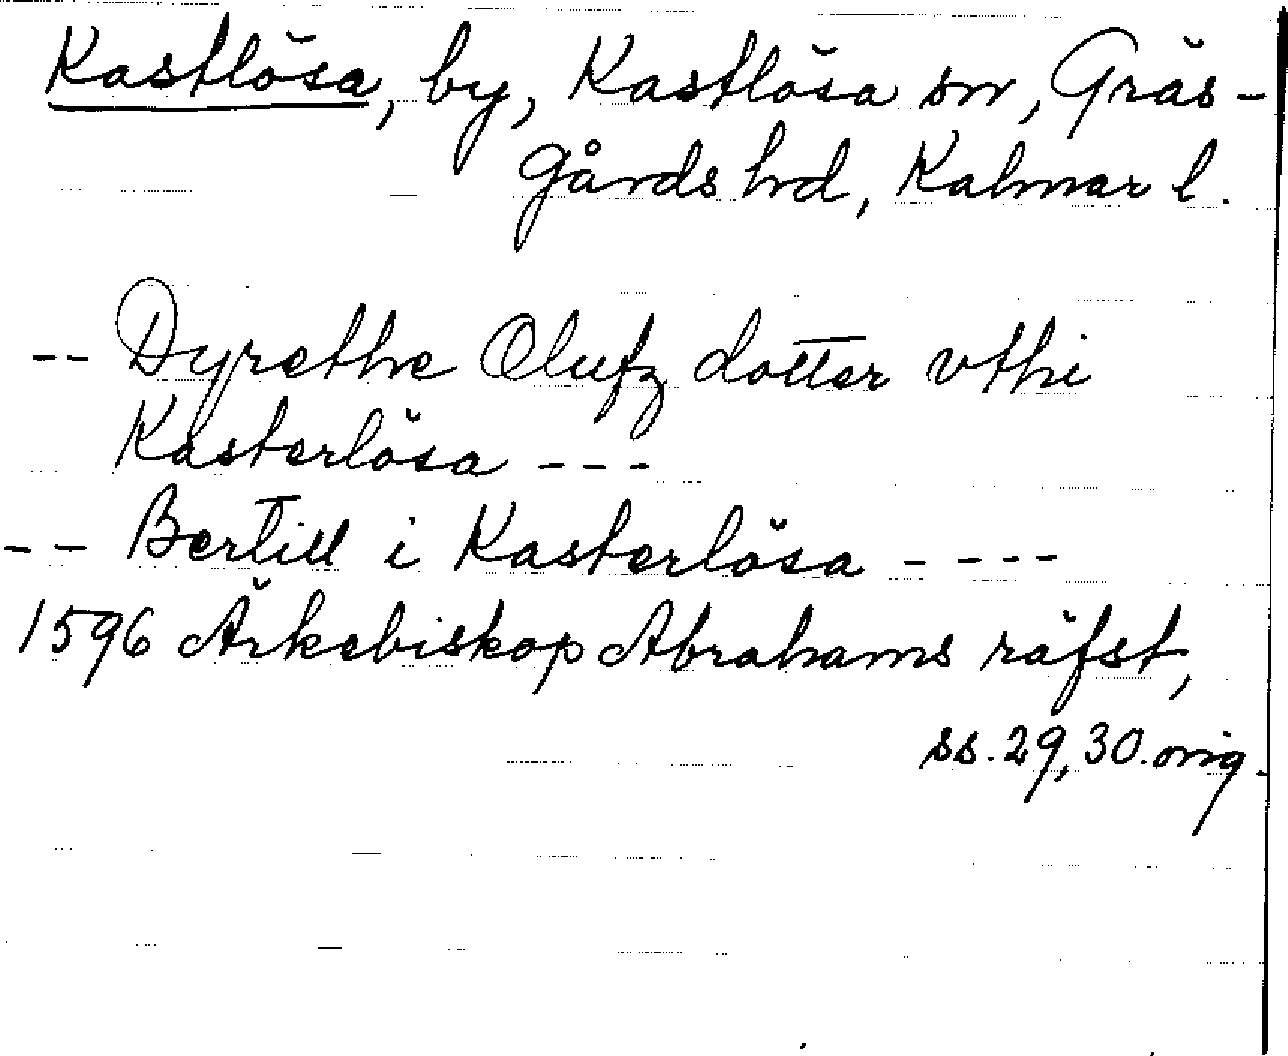 Kastlösa, by, Kastlösa sn, Gräs-
gårds hd, Kalmar l.
-- Dyrethe Olufz dotter vthi
Kasterlösa ---
-- Bertill i Kasterlösa ----
1596 Ärkebiskop Abrahams räfst,
ss. 29, 30. orig.